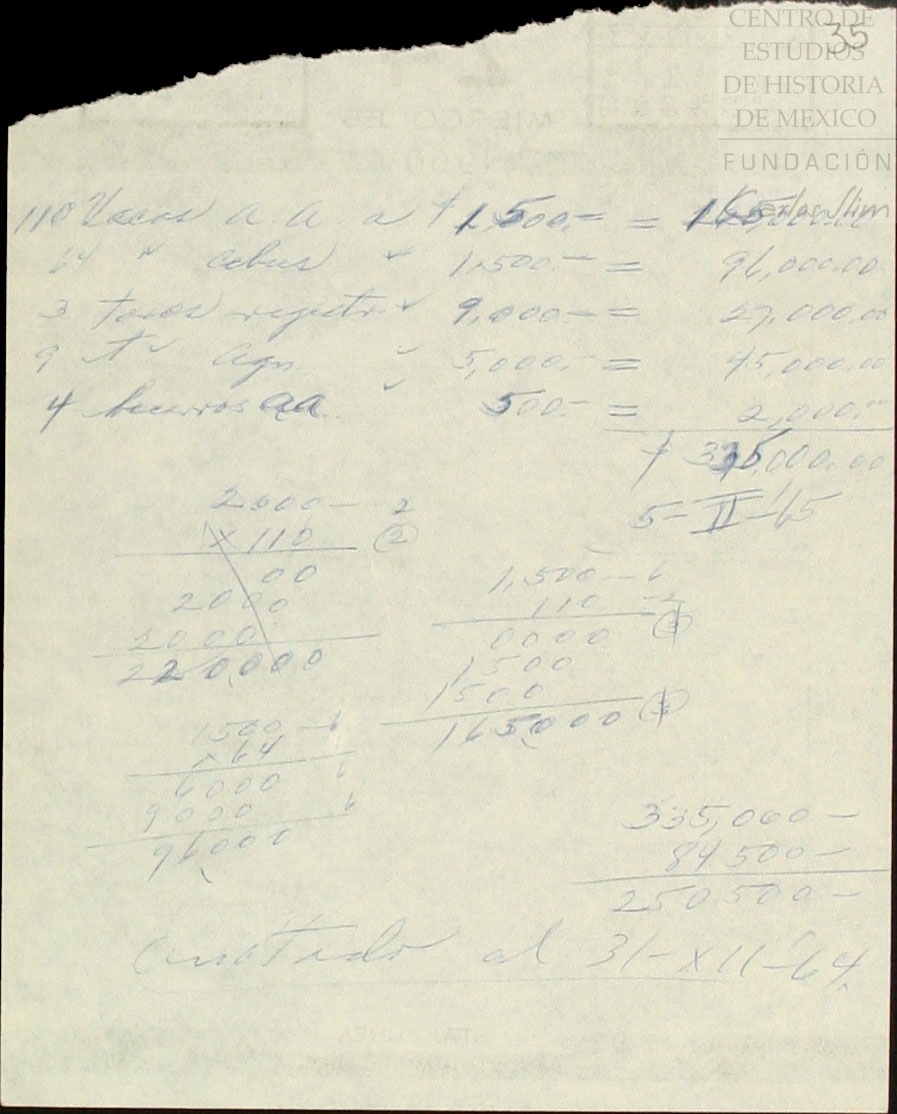 CENTRO DE
35
ESTUDIOS
DE HISTORIA
DE MEXICO
FUNDACIÓN
Carlos Slim
MIERCOLES
1960
110 Vacas a a a $ 1,500.- = 165,000.00
64 " cebus " 1,500.- = 96,000.00
3 toros registro " 9,000.- = 27,000.00
9 " " 5,000.- = 45,000.00
4 aa. " 500.- = 2,000.00
$ 335,000.00
5-II-65
2000- 2
x 110 2
00
2000
2000
220,000
1,500- 6
110 -2
0000
1500
1500
165,000
1500-6
x 64
6000 6
9000 6
96,000
335,000-
84 500-
250 500-
al 31-XII-64.